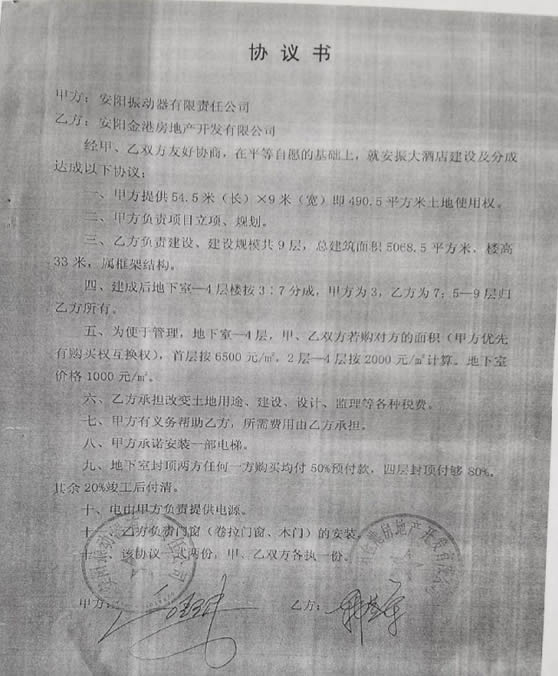 协议书
甲方：安阳振动器有限责任公司
乙方：安阳金港房地产开发有限公司
经甲、乙双方友好协商，在平等自愿的基础上，就安振大酒店建设及分成
达成以下协议：
一、甲方提供54.5米（长）×9米（宽）即490.5平方米土地使用权。
二、甲方负责项目立项、规划。
三、乙方负责建设、建设规模共9层，总建筑面积5068.5平方米、楼高
33米，属框架结构。
四、建成后地下室—4层楼按3：7分成，甲方为3，乙方为7；5—9层归
乙方所有。
五、为便于管理，地下室—4层，甲、乙双方若购对方的面积（甲方优先
有购买权互换权），首层按6500元/㎡，2层—4层按2000元/㎡计算。地下室
价格1000元/㎡。
六、乙方承担改变土地用途、建设、设计、监理等各种税费。
七、甲方有义务帮助乙方，所需费用由乙方承担。
八、甲方承诺安装一部电梯。
九、地下室封顶两方任何一方购买均付50%预付款，四层封顶付够80%。
其余20%竣工后付清。
十、电由甲方负责提供电源。
十一、乙方负责门窗（卷拉门窗、木门）的安装。
十二、该协议一式两份，甲、乙双方各执一份。
甲方：
乙方：